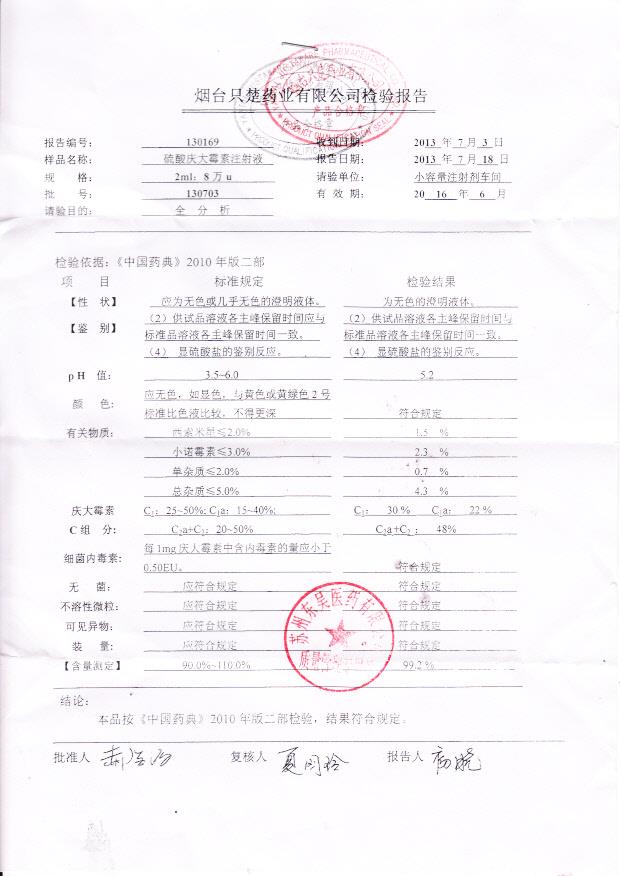 烟台只楚药业有限公司检验报告
产品合格章
PRODUCT QUALIFICATION SEAL
报告编号： 130169 收到日期： 2013 年 7 月 3 日
样品名称： 硫酸庆大霉素注射液 报告日期： 2013 年 7 月 18 日
规 格： 2ml：8 万 u 请验单位： 小容量注射剂车间
批 号： 130703 有 效 期： 20 16 年 6 月
请验目的： 全 分 析
检验依据：《中国药典》2010 年版二部
项 目 标准规定 检验结果
【性 状】 应为无色或几乎无色的澄明液体。 为无色的澄明液体。
（2）供试品溶液各主峰保留时间应与 （2）供试品溶液各主峰保留时间与
【鉴 别】 标准品溶液各主峰保留时间一致。 标准品溶液各主峰保留时间一致。
（4） 显硫酸盐的鉴别反应。 （4） 显硫酸盐的鉴别反应。
pH 值： 3.5~6.0 5.2
应无色，如显色，与黄色或黄绿色 2 号
颜 色： 标准比色液比较，不得更深 符合规定
有关物质： 西索米星≤2.0% 1.5 %
小诺霉素≤3.0% 2.3 %
单杂质≤2.0% 0.7 %
总杂质≤5.0% 4.3 %
庆大霉素 C₁：25~50%; C₁a：15~40%; C₁： 30 % C₁a： 22 %
C 组 分: C₂a+C₂：20~50% C₂a+C₂： 48%
每 1mg 庆大霉素中含内毒素的量应小于
细菌内毒素: 0.50EU。 符合规定
无 菌： 应符合规定 符合规定
不溶性微粒: 应符合规定 符合规定
可见异物: 应符合规定 符合规定
装 量: 应符合规定 符合规定
【含量测定】 90.0%~110.0% 99.2 %
苏州东吴医药有限
质量
结论：
本品按《中国药典》2010 年版二部检验，结果符合规定。
批准人 复核人 报告人